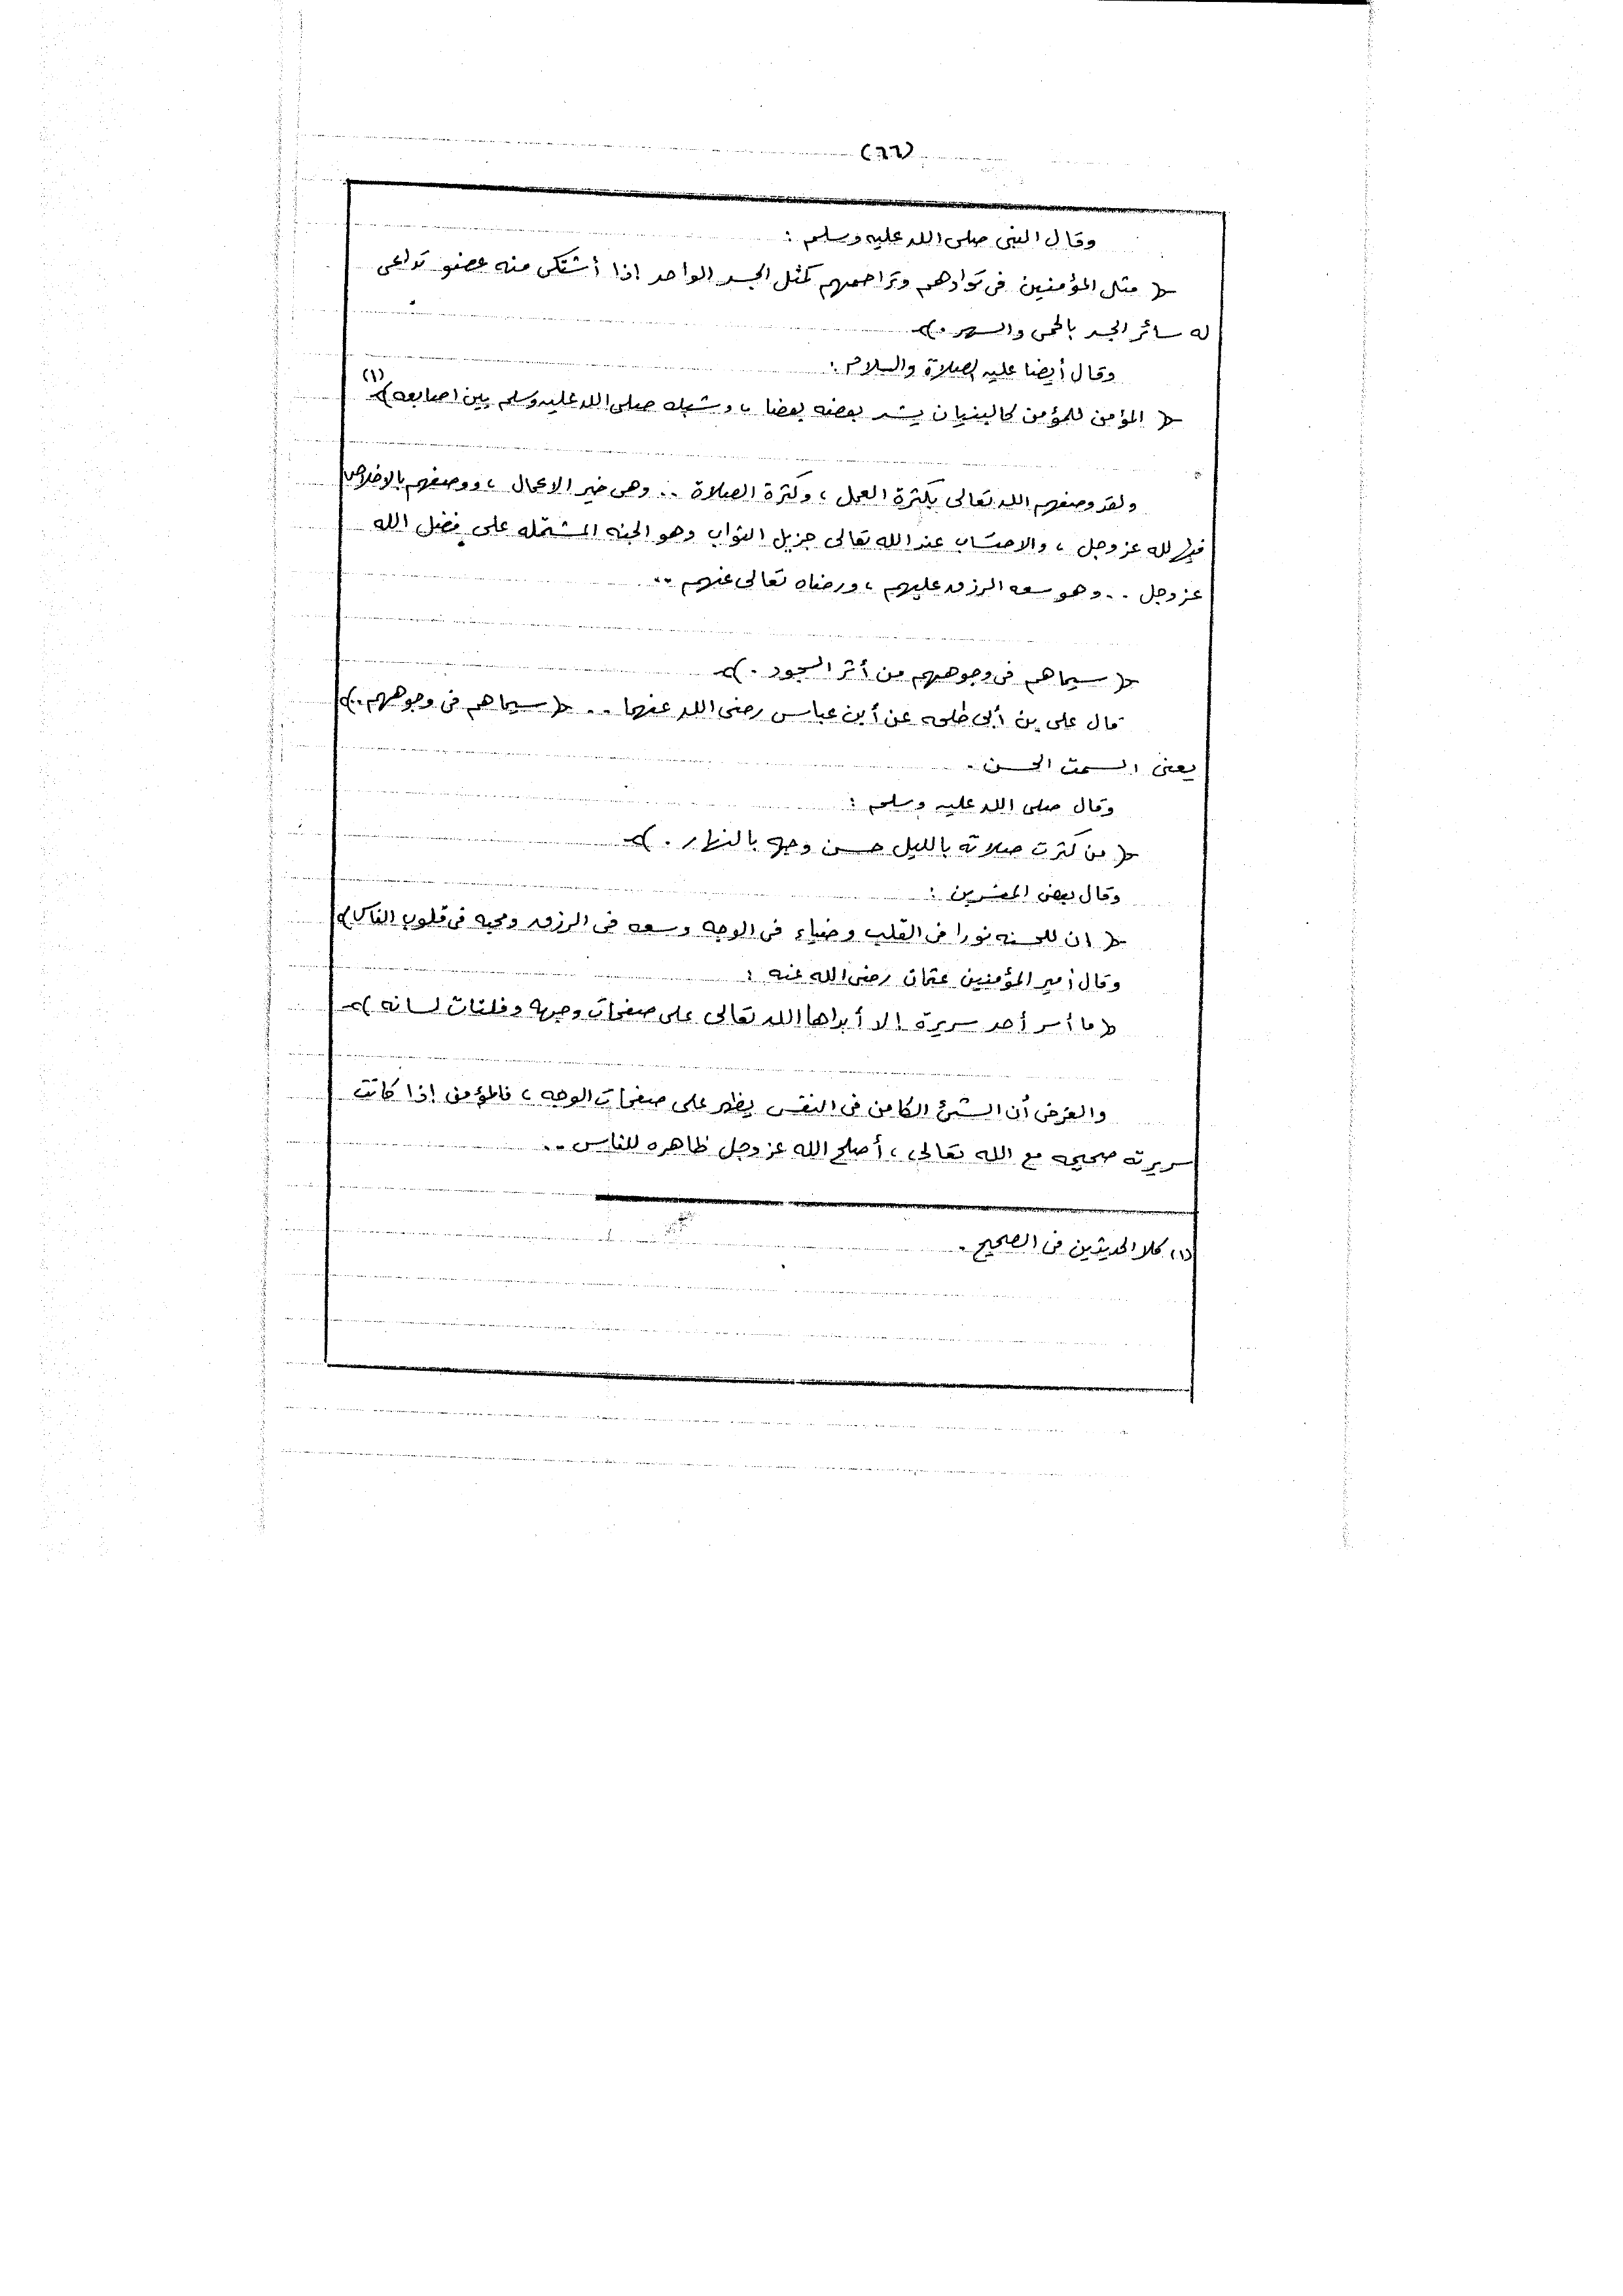 (٦٦)
وقال النبى صلى الله عليه وسلم :
﴿ مثل المؤمنين فى توادهم وتراحمهم كمثل الجسد الواحد اذا أشتكى منه عضو تداعى
له سائر الجسد بالحمى والسهر . ﴾
وقال أيضا عليه الصلاة والسلام :
﴿ المؤمن للمؤمن كالبنيان يشد بعضه بعضا ، وشبك صلى الله عليه وسلم بين اصابعه ﴾ (١)
ولقد وصفهم الله تعالى بكثرة العمل ، وكثرة الصلاة .. وهى خير الاعمال ، ووصفهم بالاخلاص
فيها لله عز وجل ، والاحتساب عند الله تعالى جزيل الثواب وهو الجنه المشتمله على فضل الله
عز وجل .. وهو سعه الرزق عليهم ، ورضاه تعالى عنهم ..
﴿ سيماهم فى وجوههم من أثر السجود . ﴾
قال على بن أبى طلحه عن أبن عباس رضى الله عنهما .. ﴿ سيماهم فى وجوههم .. ﴾
يعنى السمت الحسن .
وقال صلى الله عليه وسلم :
﴿ من كثرت صلاته بالليل حسن وجهه بالنهار . ﴾
وقال بعض المفسرين :
﴿ ان للحسنه نورا فى القلب وضياء فى الوجه وسعه فى الرزق ومحبه فى قلوب الناس ﴾
وقال أمير المؤمنين عثمان رضى الله عنه :
﴿ ما أسر أحد سريرة إلا أبداها الله تعالى على صفحات وجهه وفلتات لسانه ﴾
والغرض أن الشئ الكامن فى النفس يظهر على صفحات الوجه ، فالمؤمن إذا كانت
سريرته صحيحه مع الله تعالى ، أصلح الله عز وجل ظاهره للناس ..
(١) كلا الحديثين فى الصحيح .